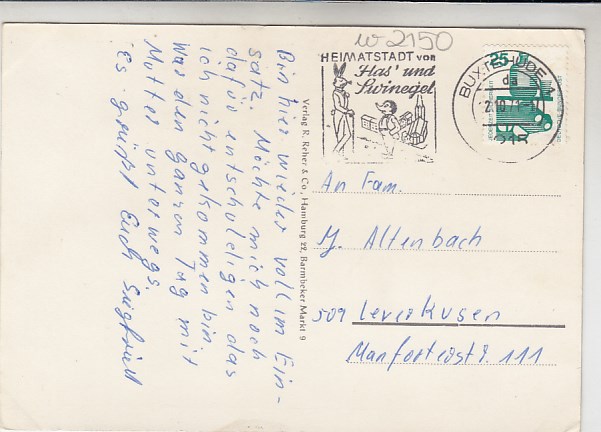 Bin hier wieder voll im Ein-
satz. Möchte mich noch
dafür entschuldigen das
ich nicht gekommen bin
War den ganzen Tag mit
Mutter unterwegs.
Es grüßt Euch Siegfried
Verlag R. Reher & Co., Hamburg 22, Barmbeker Markt 9
w-2150
HEIMATSTADT VON
Has' und
Swinegel
BUXTEHUDE 1
da
215
25
An Fam.
Altenbach
509 Leverkusen
Manforterstr. 111